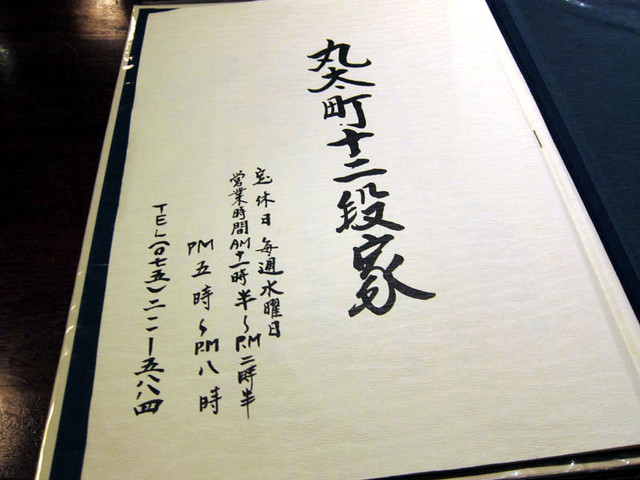 丸太町十二段家
定休日 毎週水曜日
営業時間AM十一時半〜PM二時半
PM五時〜PM八時
TEL(〇七五)二一一ー五八八四